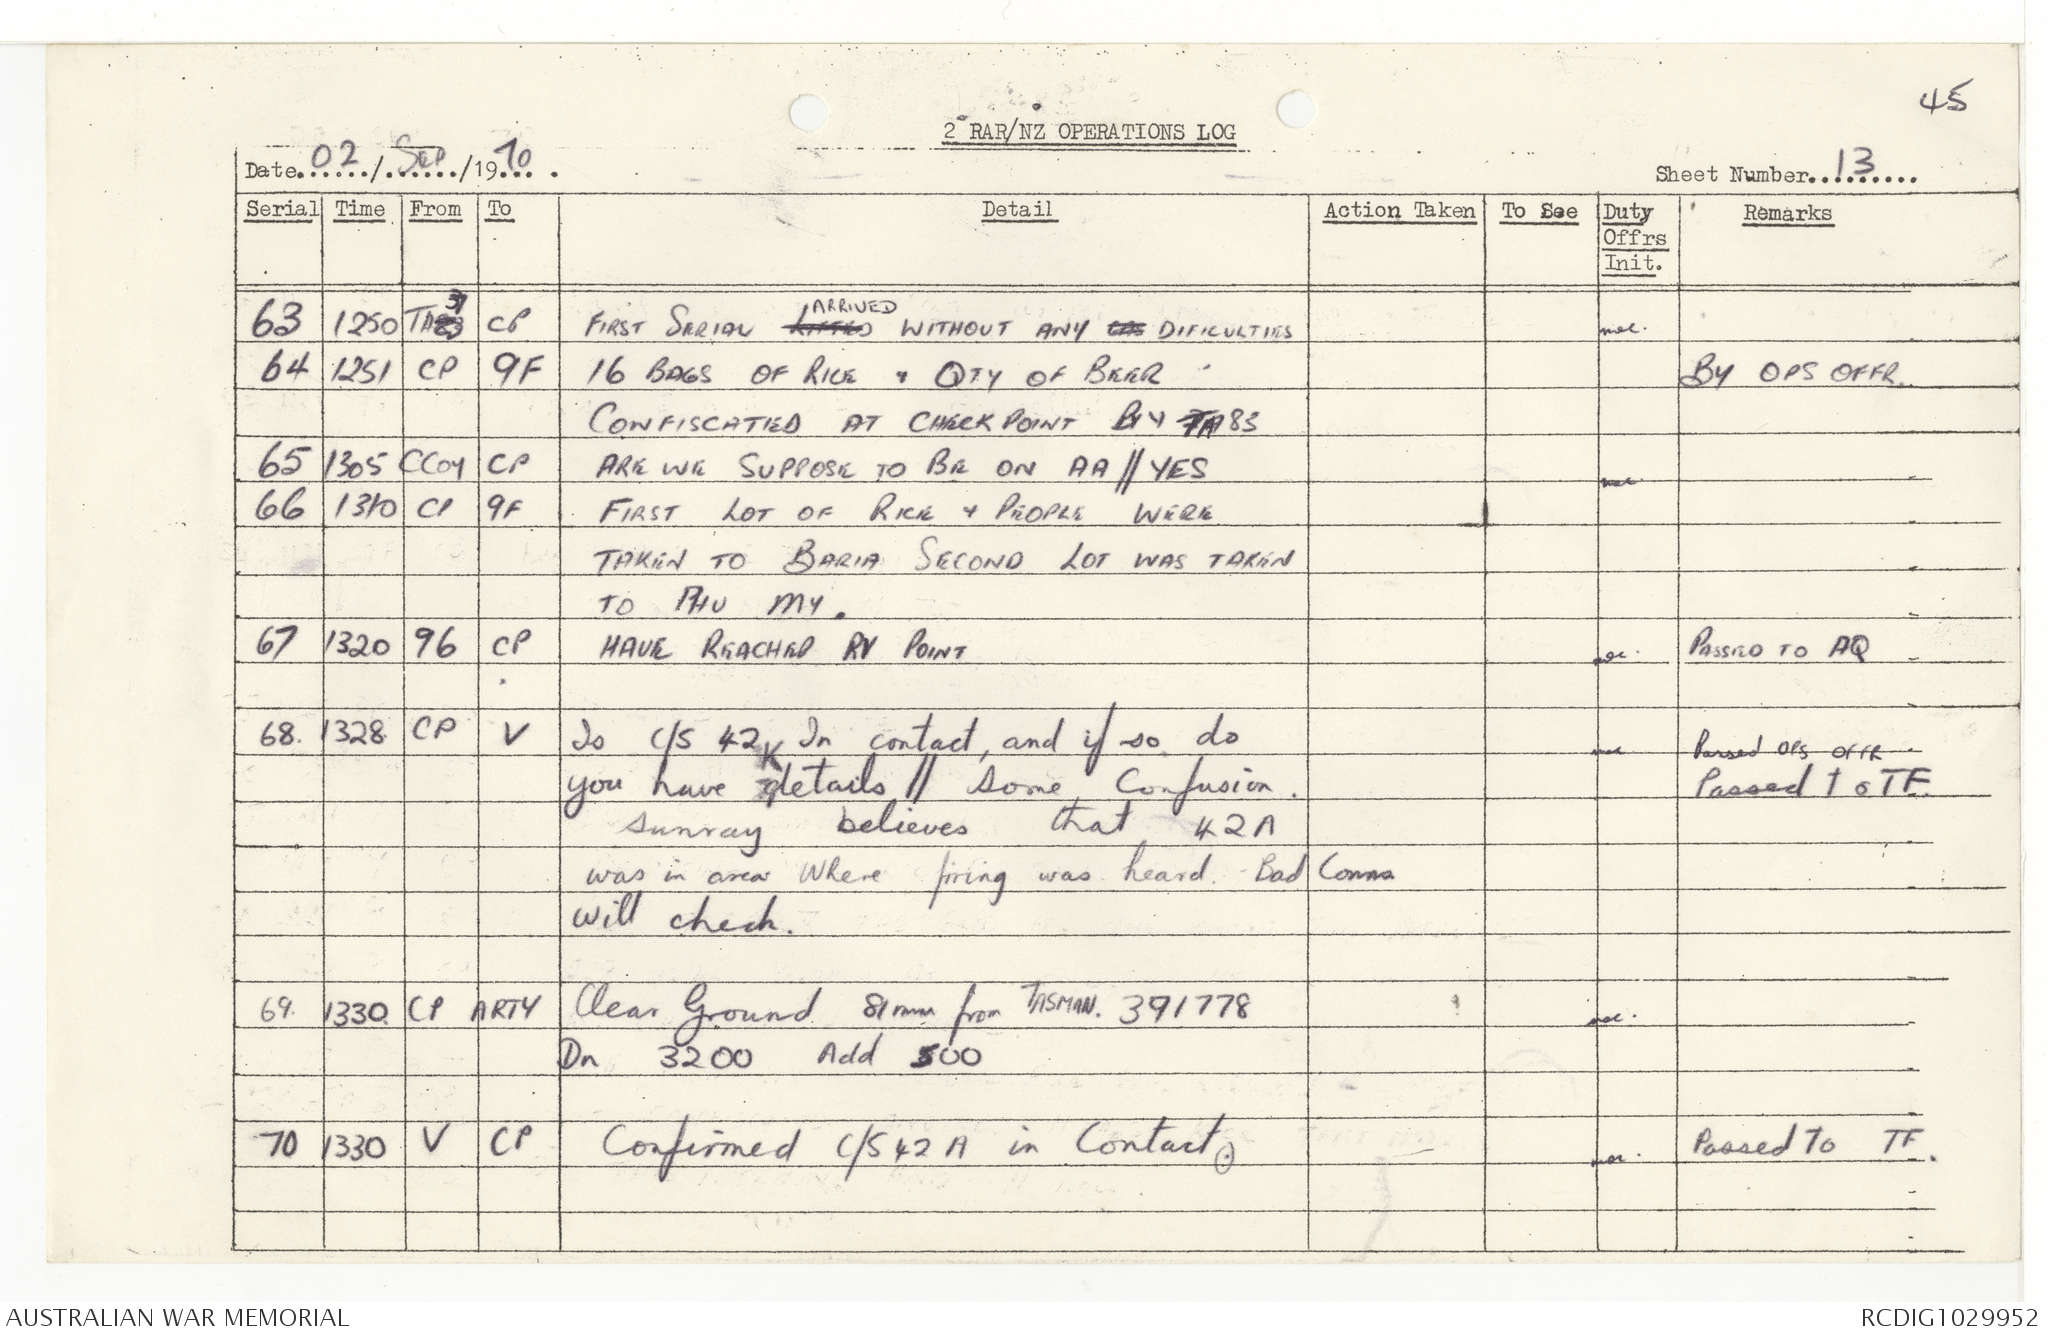 45
2 RAR/NZ OPERATIONS LOG
Date 02 / Sep /1970
Sheet Number 13
Serial Time From To Detail Action Taken To See Duty Offrs Init. Remarks
63 1250 CP FIRST SERIAL ARRIVED WITHOUT ANY DIFICULTIES
64 1251 CP 9F 16 BAGS OF RICE & QTY OF BEER BY OPS OFFR.
CONFISCATED AT CHECKPOINT BY TA83
65 1305 CCOY CP ARE WE SUPPOSE TO BE ON AA // YES
66 1310 CP 9F FIRST LOT OF RICE & PEOPLE WERE
TAKEN TO BARIA SECOND LOT WAS TAKEN
TO PHU MY.
67 1320 96 CP HAVE REACHED RV POINT PASSED TO AQ
68. 1328 CP V Is C/S 42 In contact, and if so do Passed OPS OFFR
you have details // Some Confusion. Passed to TF
Sunray believes that 42A
was in area Where firing was heard. Bad Comms
will check.
69. 1330 CP ARTY Clear Ground 81mm from TASMAN. 391778
Dn 3200 Add 500
70 1330 V CP Confirmed C/S 42A in Contact. Passed To TF.
AUSTRALIAN WAR MEMORIAL
RCDIG1029952